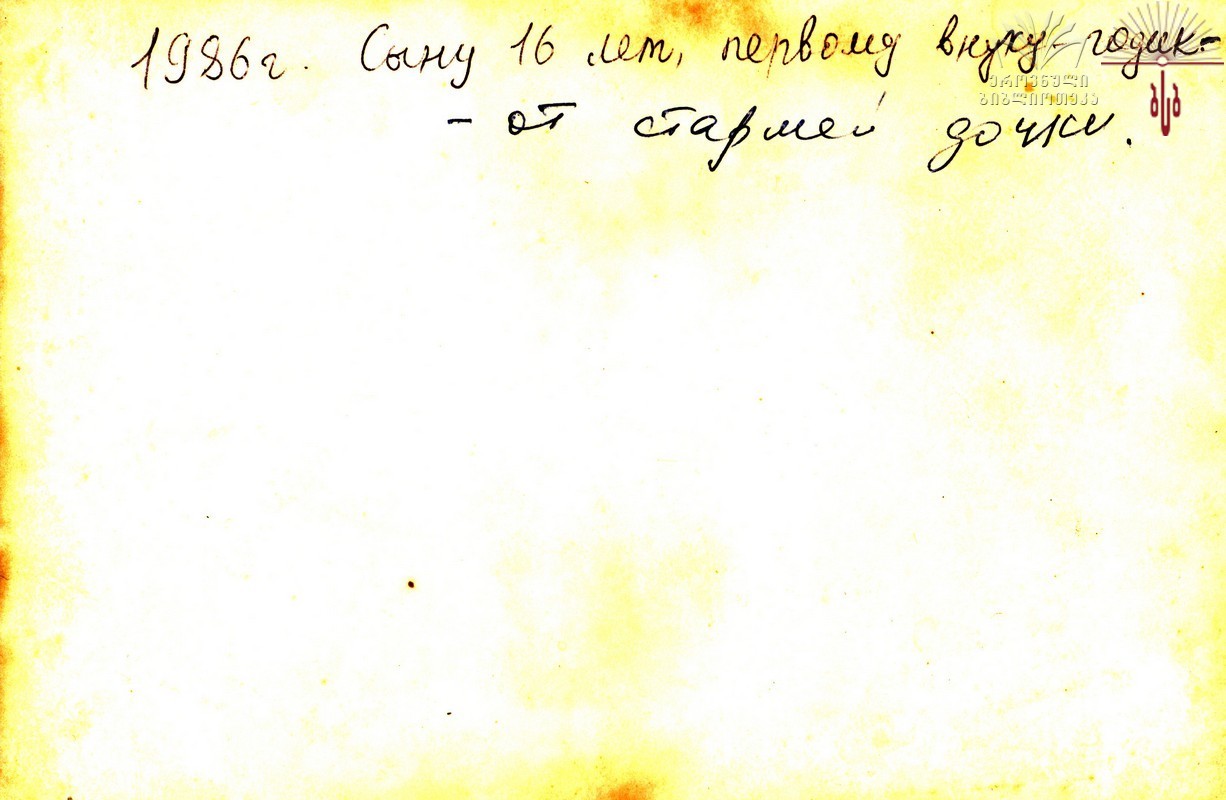 1986г. Сыну 16 лет, первому внуку- годик-
- от старшей дочки.
ეროვნული
ბიბლიოთეკა